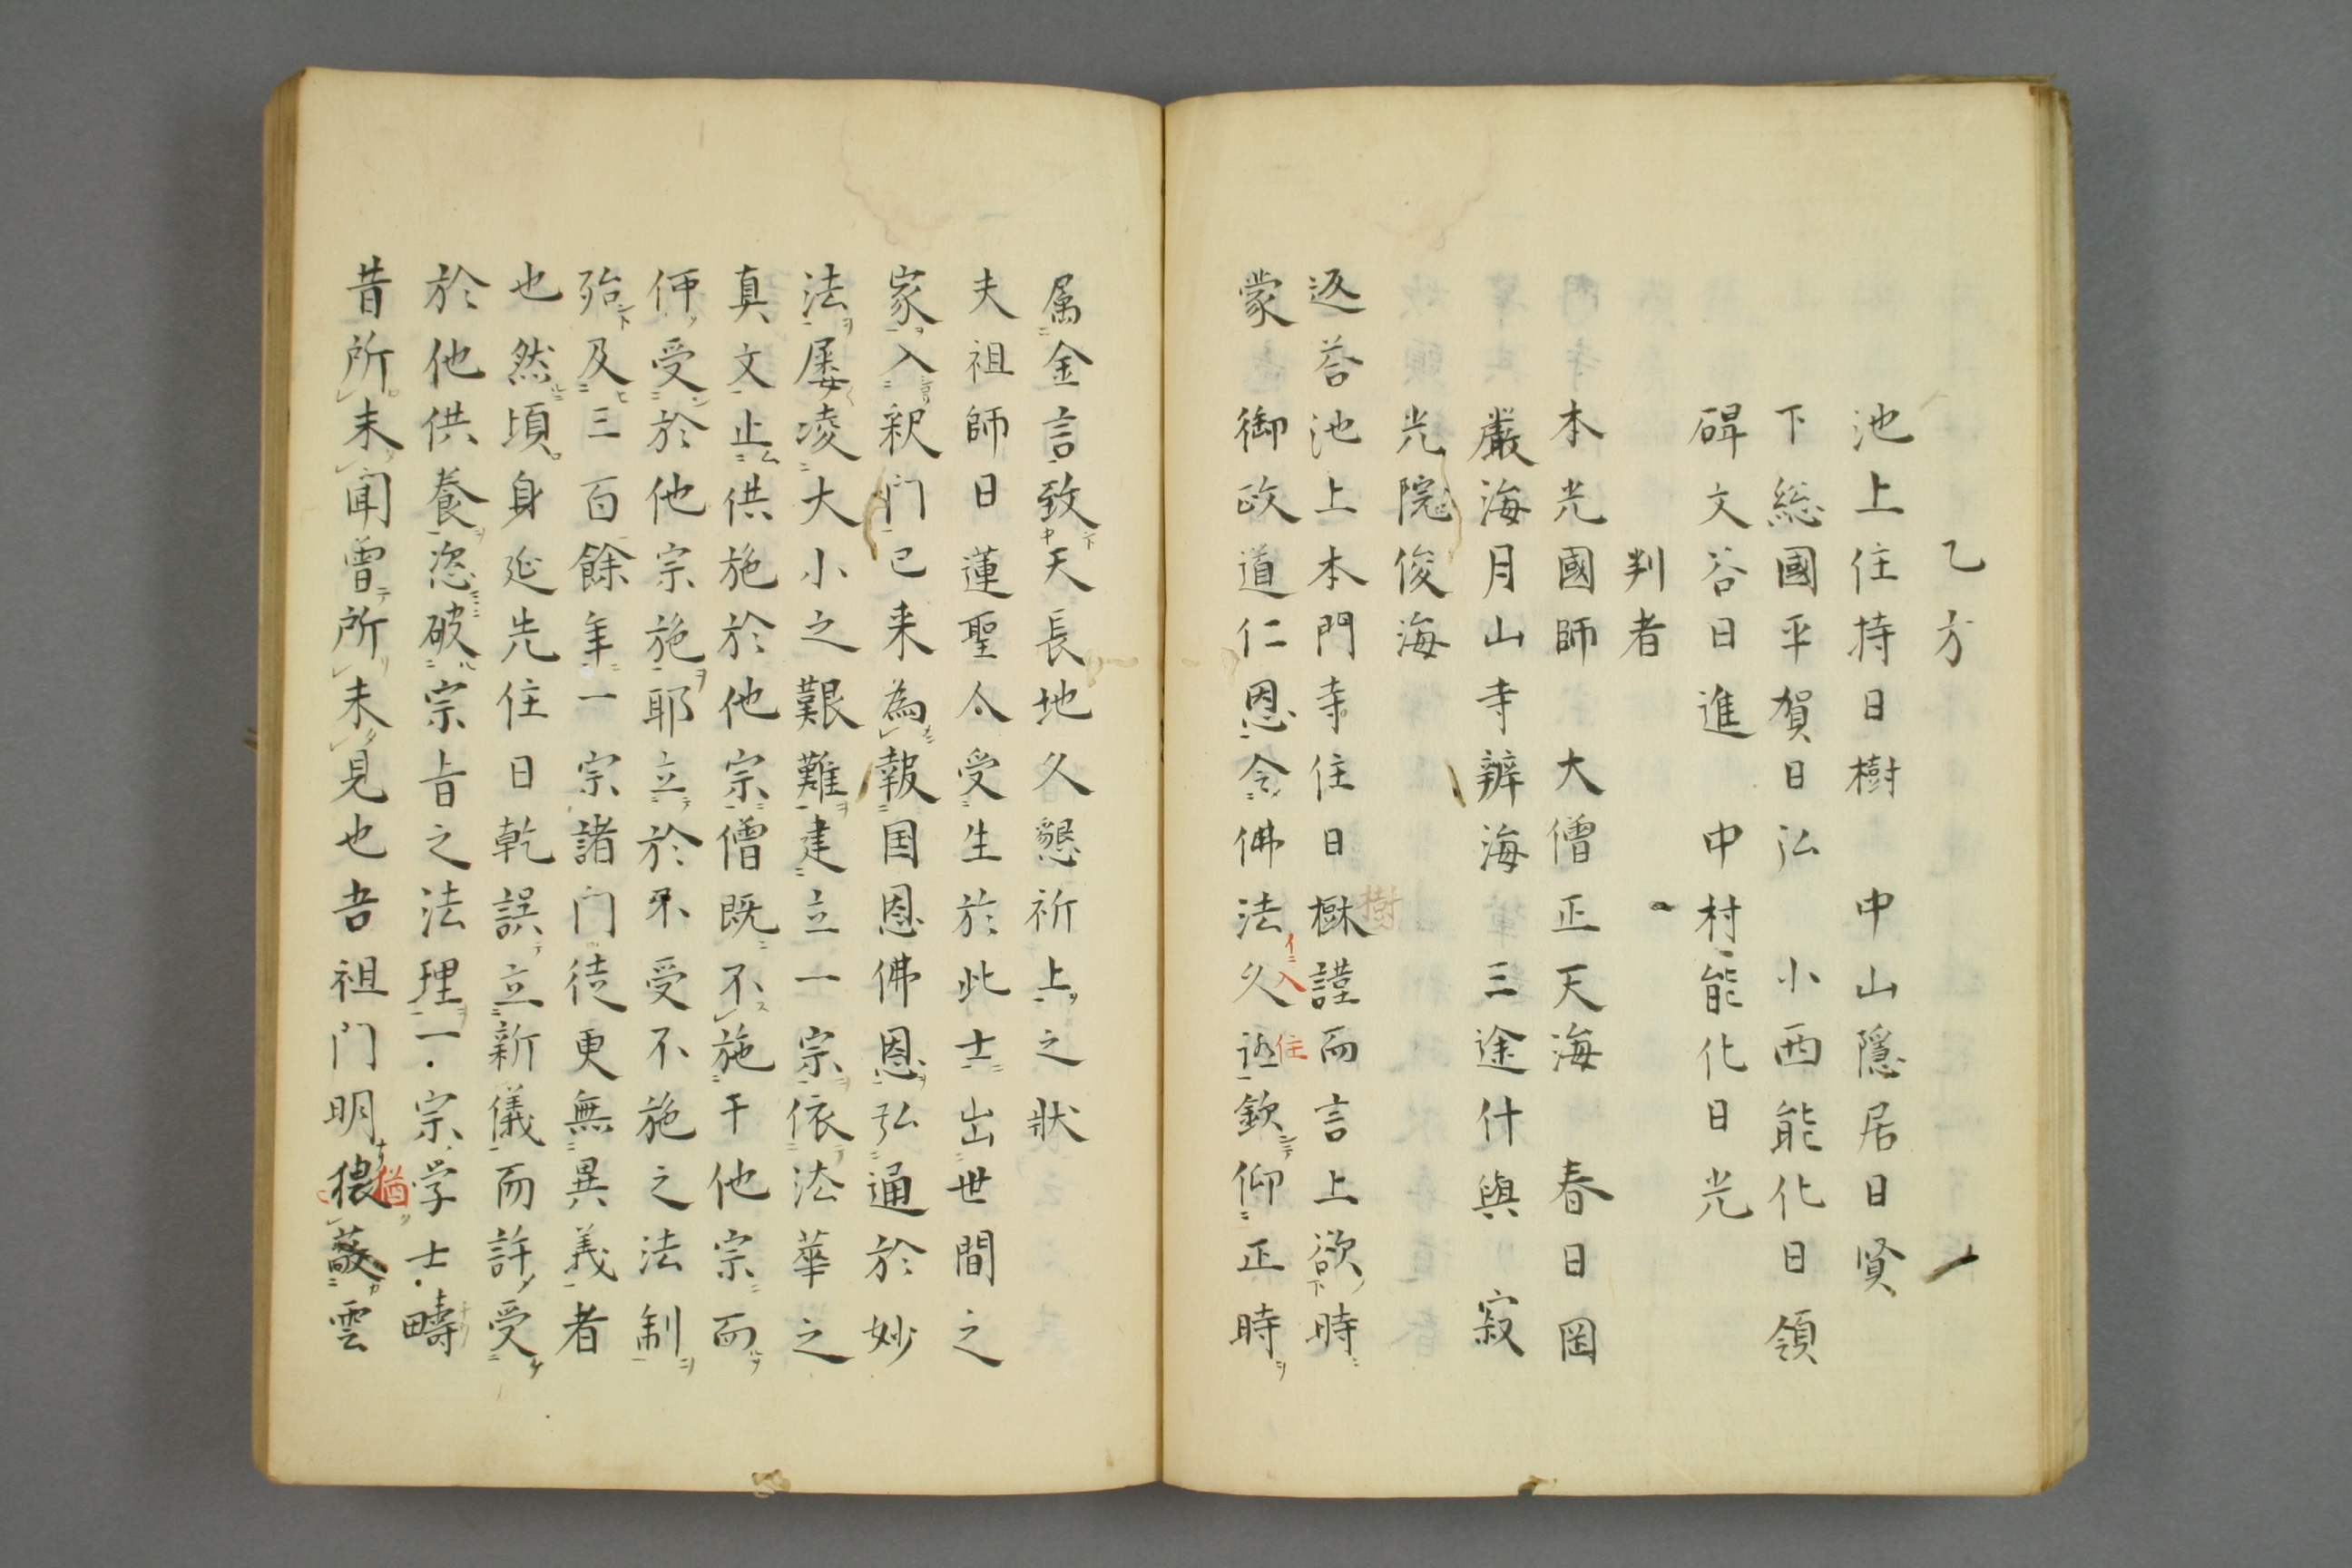 乙方
池上住持日樹　中山隱居日賢
下総國平賀日弘　小西能化日領
碑文谷日進　中村能化日光
判者
本光國師　大僧正天海　春日岡
嚴海月山寺辨海三途什與　寂
光院俊海
返荅池上本門寺住日樹謹而言上欲時
蒙　御政道仁恩令佛法久住欽仰正時
属金言致天長地久懇祈上之狀
夫祖師日蓮聖人受生於此士出世間之
家入釈门已来為報国恩佛恩弘通於妙
法屡凌大小之艱難建立一宗依法華之
真文止供施於他宗僧既不施于他宗而
何受於他宗施耶立於不受不施之法制
殆及三百餘年一宗諸门徒更無異義者
也然頃身延先住日乾誤立新儀而許受
於他供養恣破宗旨之法理一宗学士疇
昔所未聞曾所未見也吾祖门明猶蔽雲